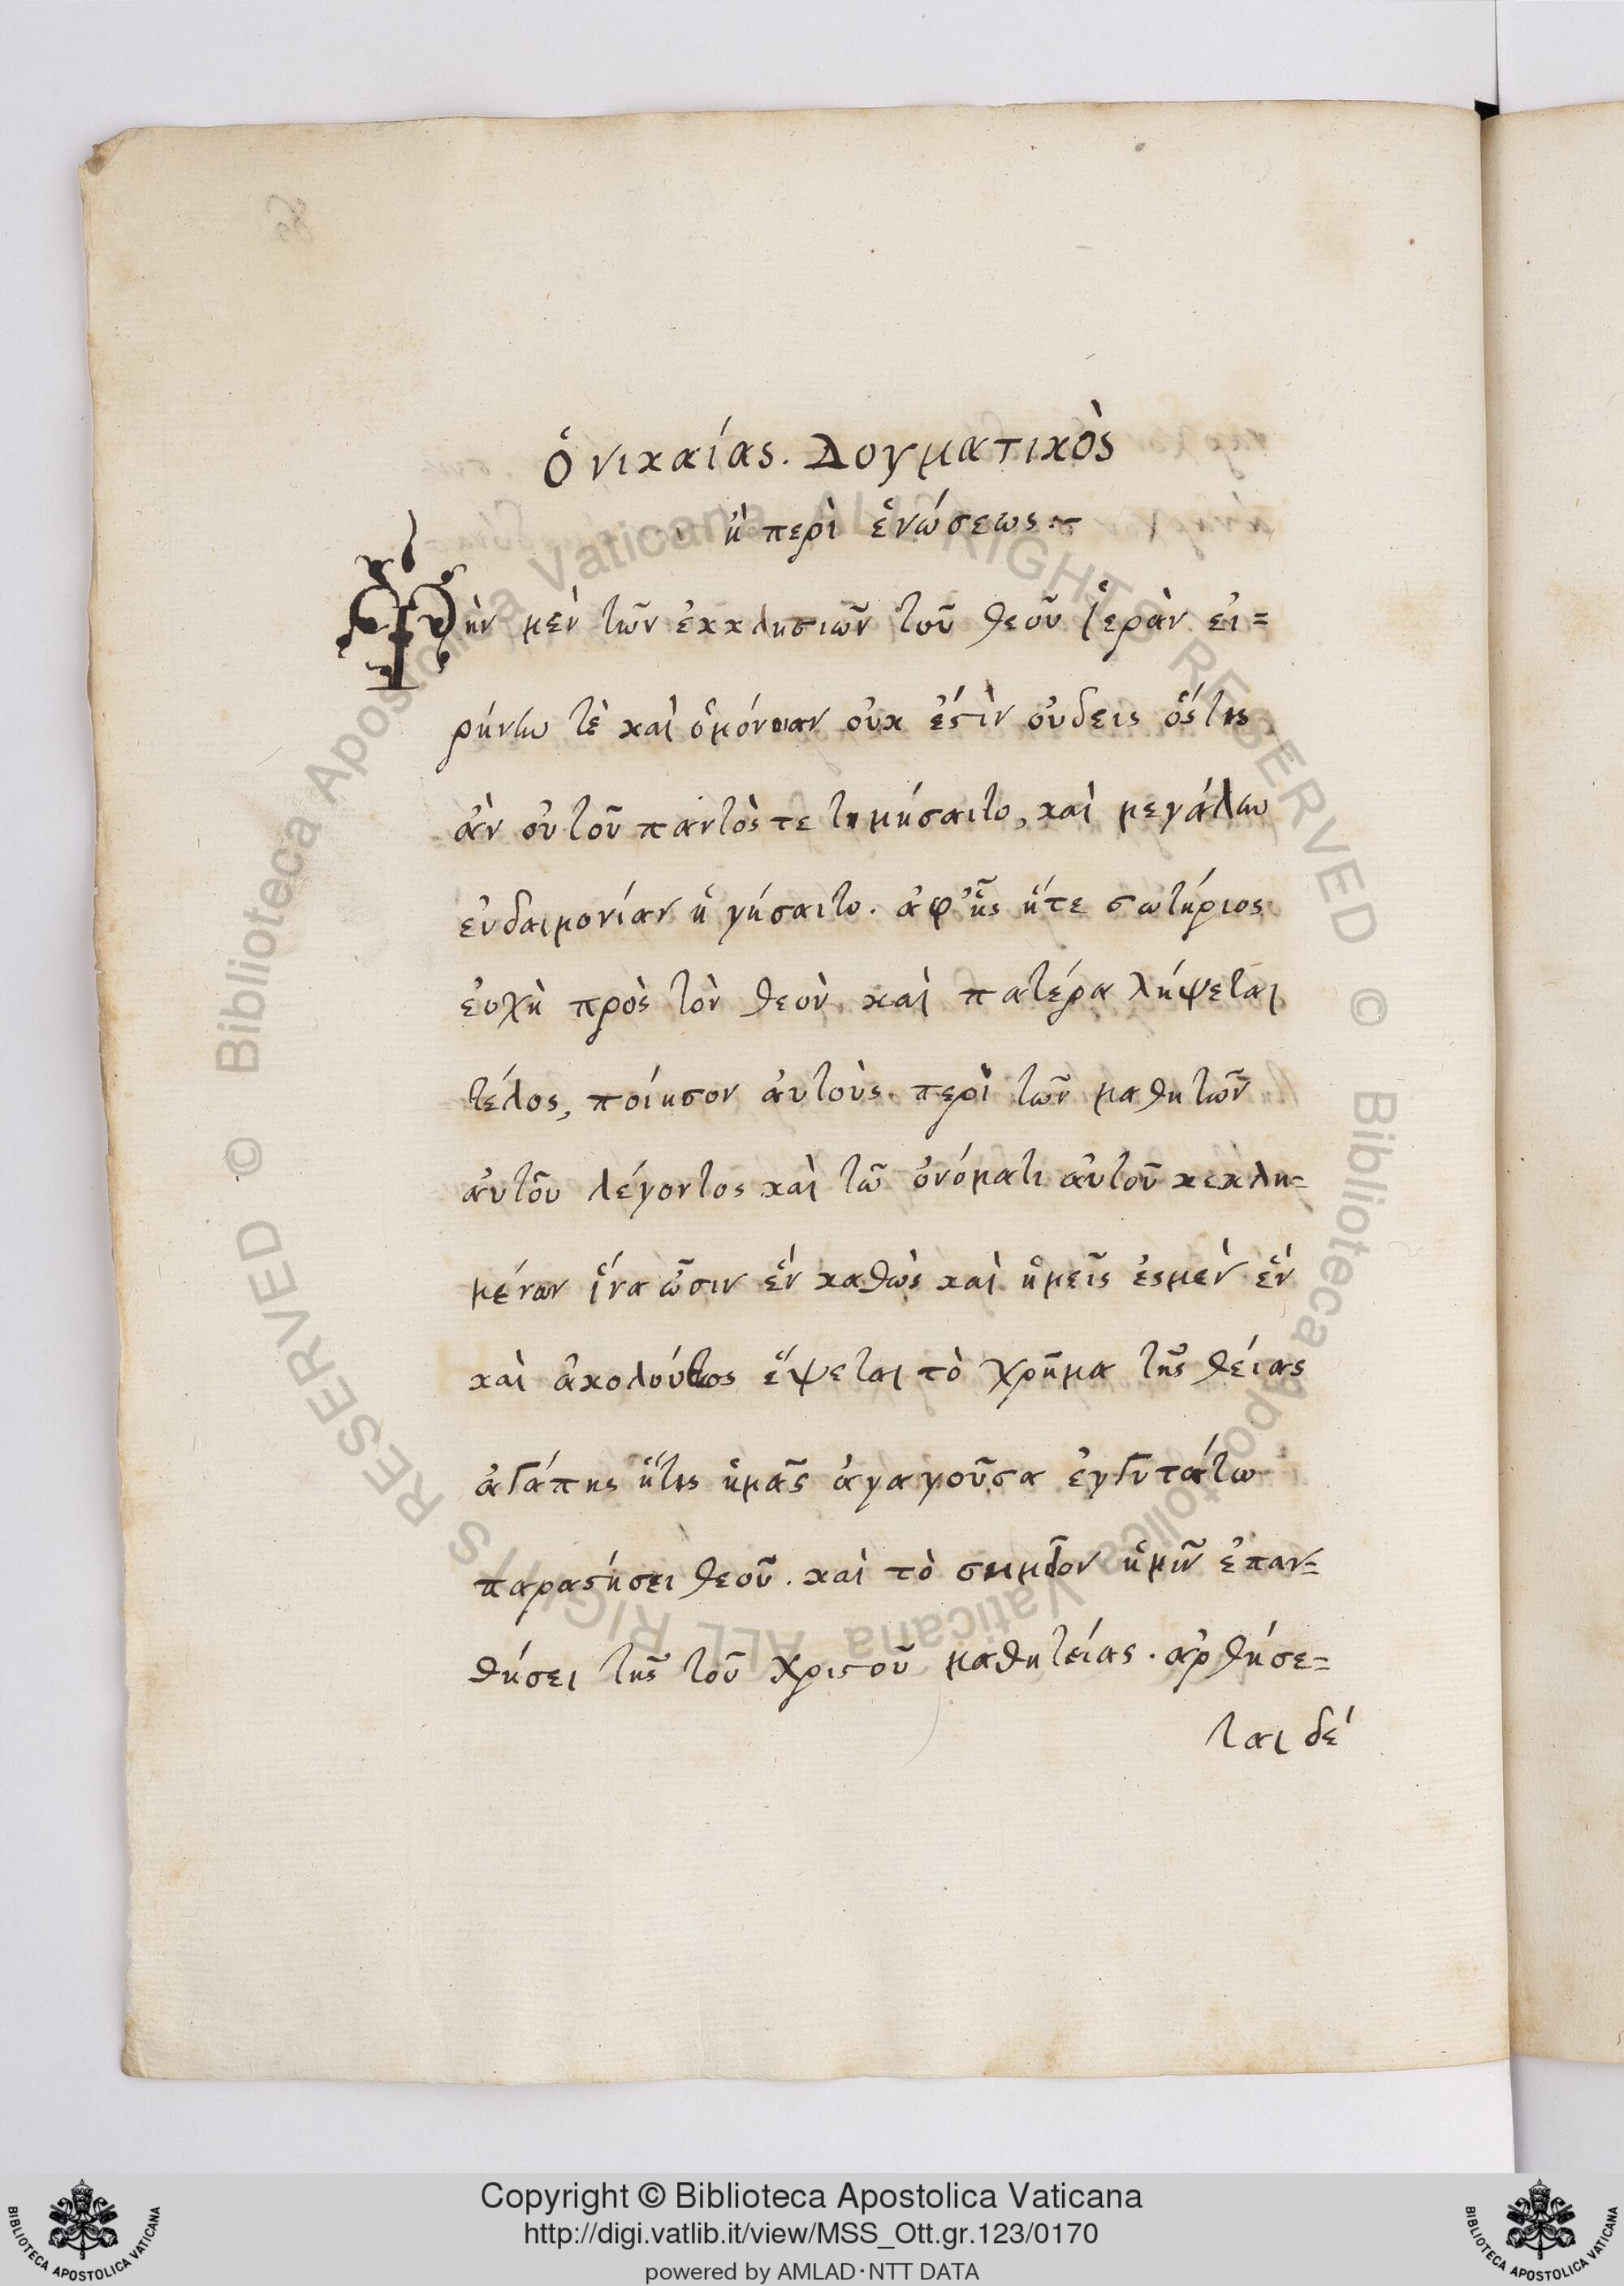 ὁ νικαίας. Δογματικὸς
ἢ περὶ ἑνώσεως :~
Τὴν μὲν τῶν ἐκκλησιῶν τοῦ θεοῦ ἱερὰν εἰ=
ρήνην τὲ καὶ ὁμόνοιαν οὐκ ἐστὶν οὐδεὶς ὅστις
ἀν οὐ τοῦ παντὸς τε τιμήσαιτο, καὶ μεγάλην
εὐδαιμονίαν ἡγήσαιτο. ἀφ' ἧς ἥτε σωτήριος
εὐχὴ πρὸς τὸν θεὸν καὶ πατέρα λήψεται
τέλος, ποίησον αὐτοὺς. περὶ τῶν μαθητῶν
αὐτοῦ λέγοντος καὶ τῶ ὀνόματι αὐτοῦ κεκλη=
μένων ἵνα ὦσιν ἓν καθὼς καὶ ἡμεῖς ἐσμὲν ἓν
καὶ ἀκολούθως ἕψεται τὸ χρῆμα τῆς θείας
ἀγάπης ἥτις ἡμᾶς ἀγαγοῦσα ἐγγυτάτω
παραστήσει θεοῦ. καὶ τὸ σημεῖον ἡμῖν ἐπαν=
θήσει τῆς τοῦ Χριστοῦ μαθητείας. ἀρθήσε=
ται δέ
Copyright © Biblioteca Apostolica Vaticana
http://digi.vatlib.it/view/MSS_Ott.gr.123/0170
powered by AMLAD·NTT DATA
BIBLIOTECA APOSTOLICA VATICANA
BIBLIOTECA APOSTOLICA VATICANA
© Biblioteca Apostolica Vaticana ALL RIGHTS RESERVED © Biblioteca Apostolica Vaticana ALL RIGHTS RESERVED